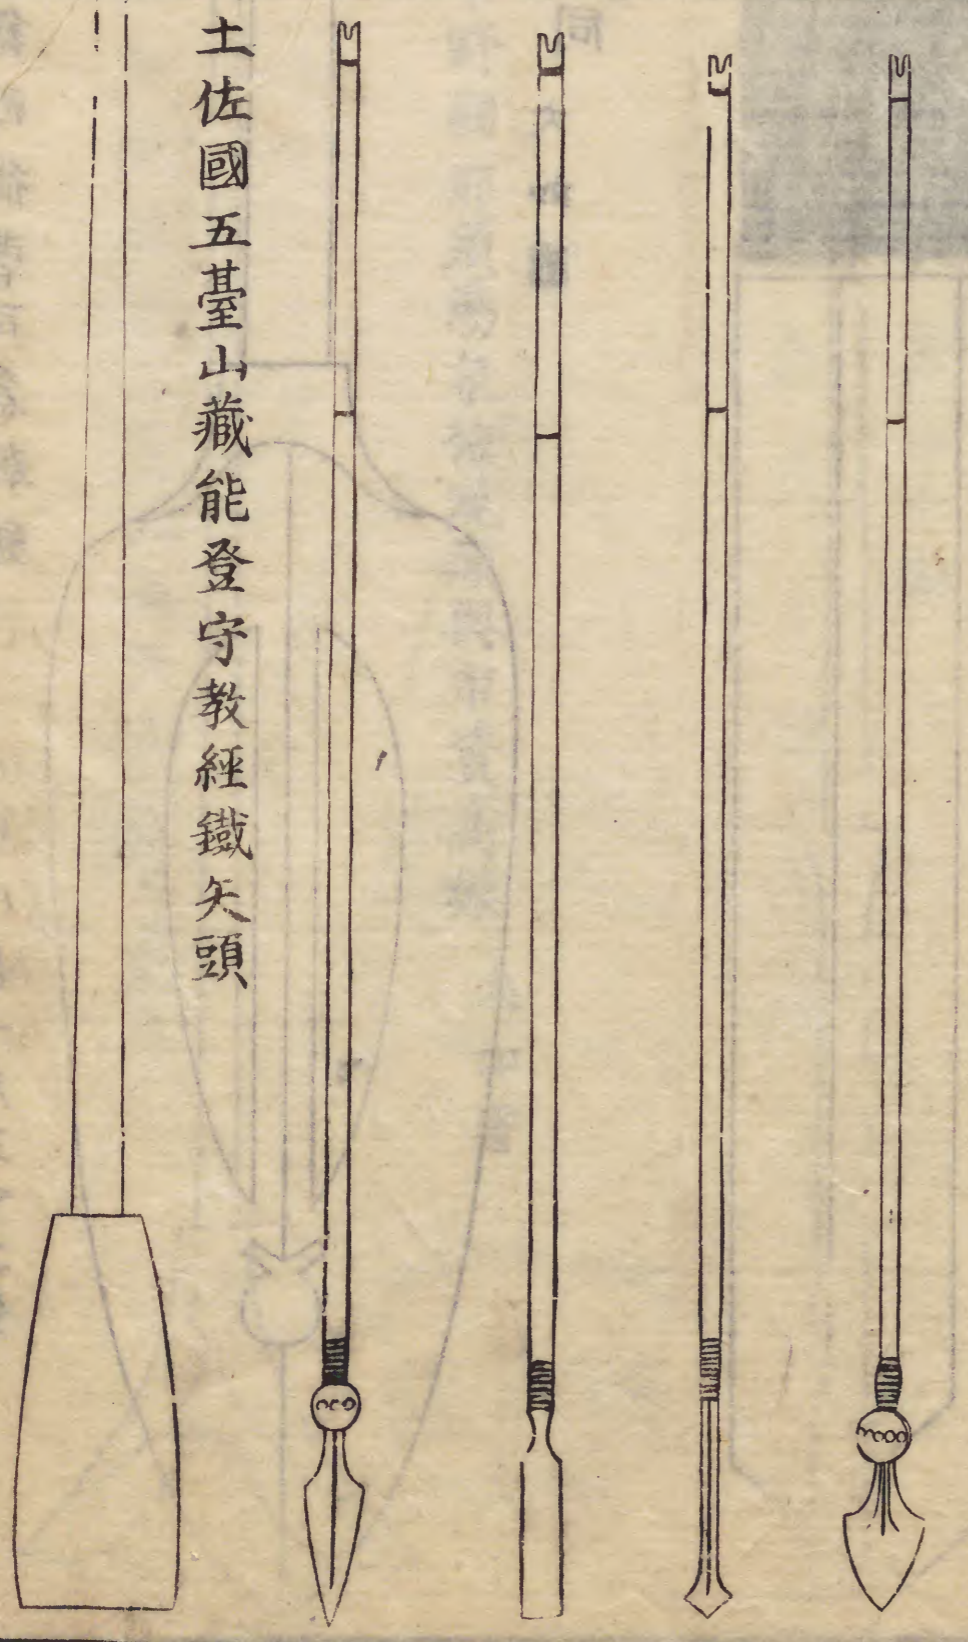 土佐國五臺山藏能登守教經鐵矢頭